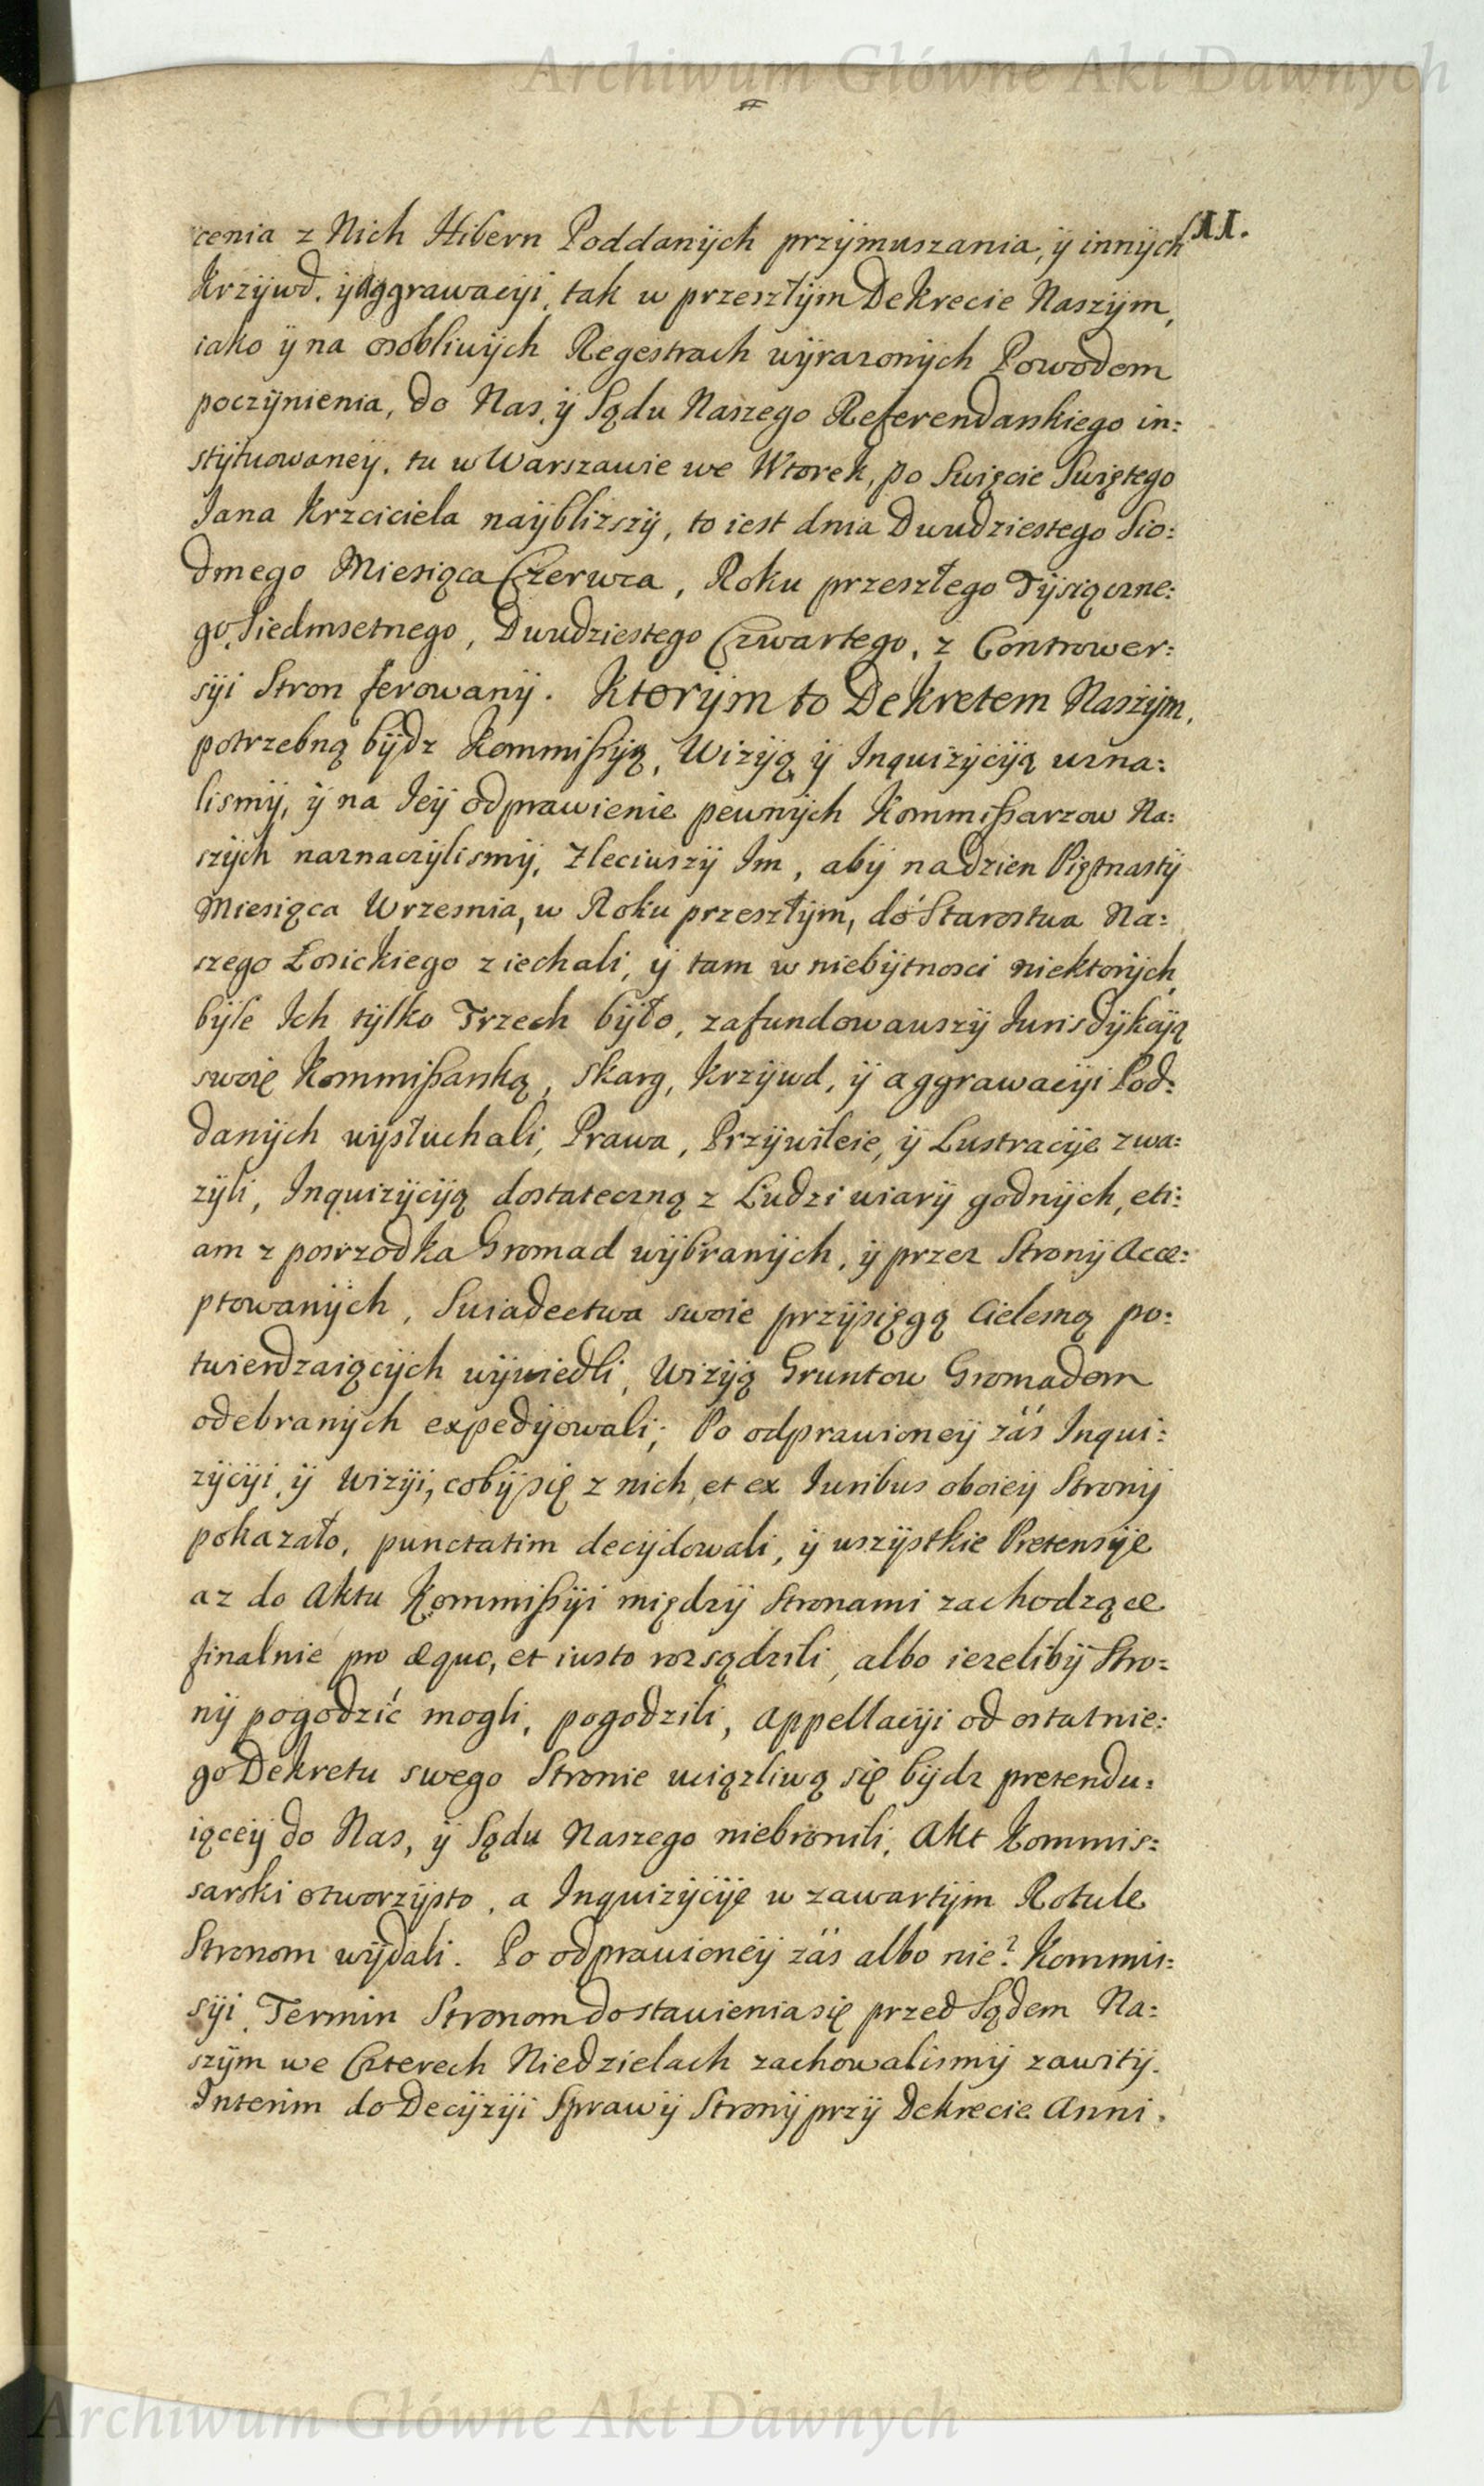 Archiwum Główne Akt Dawnych
11.
cenia z Nich Hibern Poddanÿch przÿmuszania, ÿ innÿch
Krzÿwd, ÿ Aggrawacÿi, tak w przeszłÿm Dekrecie Naszÿm,
iako ÿ na osobliwÿch Regestrach wÿrazonÿch Powodom
poczÿnienia, do Nas, ÿ Sądu Naszego Referendarskiego in:
stÿtuowaneÿ, tu w Warszawie we Wtorek, po Swięcie Swiętego
Jana Krzciciela naÿblizszÿ, to iest dnia Dwudziestego Sio:
dmego Miesiąca Czerwca, Roku przeszłego Tÿsiączne:
go, Siedmsetnego, Dwudziestego Czwartego, z Contrower:
sÿi Stron ferowanÿ. Ktorÿm to Dekretem Naszÿm,
potrzebną bÿdz Kommißÿą, Wizÿą, ÿ Inquizÿcÿą uzna:
lismÿ, ÿ na Ieÿ odprawienie pewnÿch Kommißarzow Na:
szÿch naznaczÿlismÿ, Zleciwszÿ Im, abÿ na dzien Piętnastÿ
Miesiąca Wrzesnia, w Roku przeszłÿm, do Starostwa Na:
szego Łosickiego ziechali, ÿ tam w niebÿtnosci niektorÿch,
bÿle Ich tÿlko Trzech bÿło, zafundowawszÿ Iurisdÿkcÿą
swoię Kommißarską, Skarg, Krzÿwd, ÿ aggrawacÿi Pod:
danÿch wÿsłuchali, Prawa, Przÿwileie, ÿ Lustracÿe zwa:
zÿli, Inquizÿcÿą dostateczną z Ludzi wiarÿ godnÿch, eti:
am z posrzodka Gromad wÿbranÿch, ÿ przez Stronÿ Acce:
ptowanÿch, Swiadectwa swoie przÿsięgą Cielesną po:
twierdzaiącÿch wÿwiedli, Wizÿą Gruntow Gromadom
odebranÿch expedÿowali; Po odprawioneÿ zás Inqui:
zÿcÿi, ÿ Wizÿi, cobÿ się z nich, et ex Iuribus oboieÿ Stronÿ
pokazało, punctatim decÿdowali, ÿ wszÿstkie Pretensÿe
az do Aktu Kommißÿi międzÿ Stronami zachodzące
finalnie pro æquo, et iusto rozsądzili, albo iezelibÿ Stro:
nÿ pogodzić mogli, pogodzili, Appellacÿi od ostatnie:
go Dekretu swego Stronie uciązliwą się bÿdz pretendu:
iąceÿ do Nas, ÿ Sądu Naszego niebronili, Akt Kommis:
sarski otworzÿsto, a Inquizÿcÿę w zawartÿm Rotule
Stronom wÿdali. Po odprawioneÿ zás albo nie? Kommis:
sÿi, Termin Stronom do stawienia się przed Sądem Na:
szÿm we Czterech Niedzielach zachowalismÿ zawitÿ.
Interim do Decÿzÿi Sprawÿ Stronÿ przÿ Dekrecie Anni.
Archiwum Główne Akt Dawnych